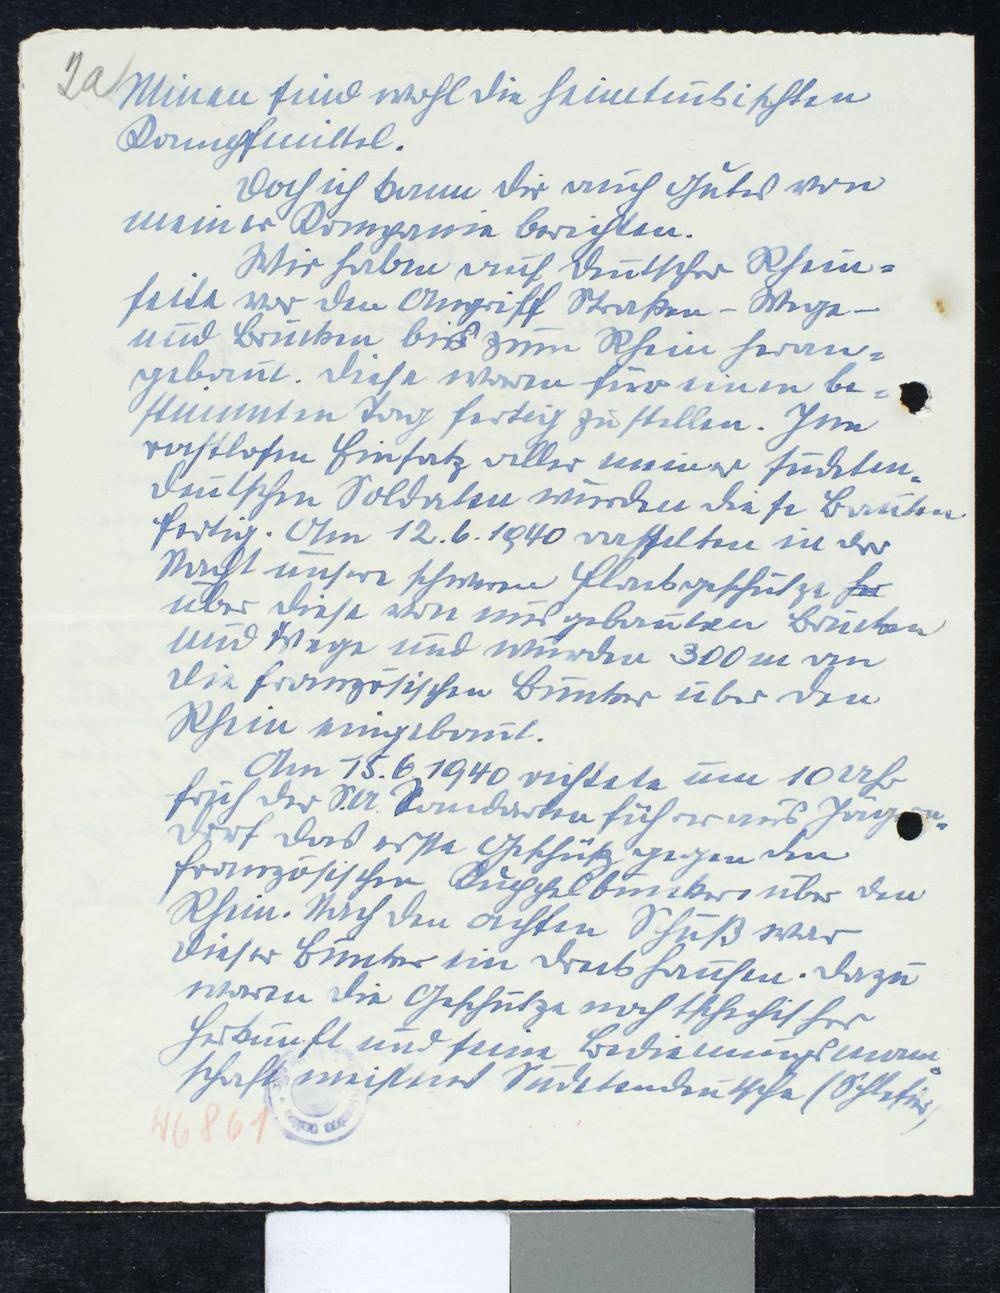 2a
Minen sind wohl die heimtückischsten
Kampfmittel.
Doch ich kann Dir auch Gutes von
meiner Kompanie berichten.
Wir haben auf deutscher Rhein=
seite vor dem Angriff Straßen- Wege-
und Brücken bis zum Rhein heran=
gebaut. Diese waren für einen be=
stimmten Tag fertig zu stellen. Im
rastlosen Einsatz aller meiner sudeten=
deutschen Soldaten wurden diese Bauten
fertig. Am 12.6.1940 rasselten in der
Nacht unsere schweren Flakgeschütze
über diese von uns gebauten Brücken
und Wege und wurden 300 m an
die französischen Bunker über den
Rhein eingebaut.
Am 15.6.1940 richtete um 10 Uhr
früh der SA Standartenführer aus Jägern=
dorf das erste Geschütz gegen den
französischen Kuppelbunker über den
Rhein. Nach den achten Schuß war
dieser Bunker ein Dreckhaufen. Dazu
waren die Geschütze noch tschechischer
Herkunft und seine Bedienungsmann=
schaft meistens Sudetendeutsche (Schlesier)
46861